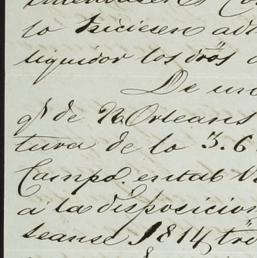 lo hiciesen
liquidor los drōs
De un
qe de N. Orleans
tura de lo 3.6
Campo. entab
a la disposicion
leanse 1814, trō